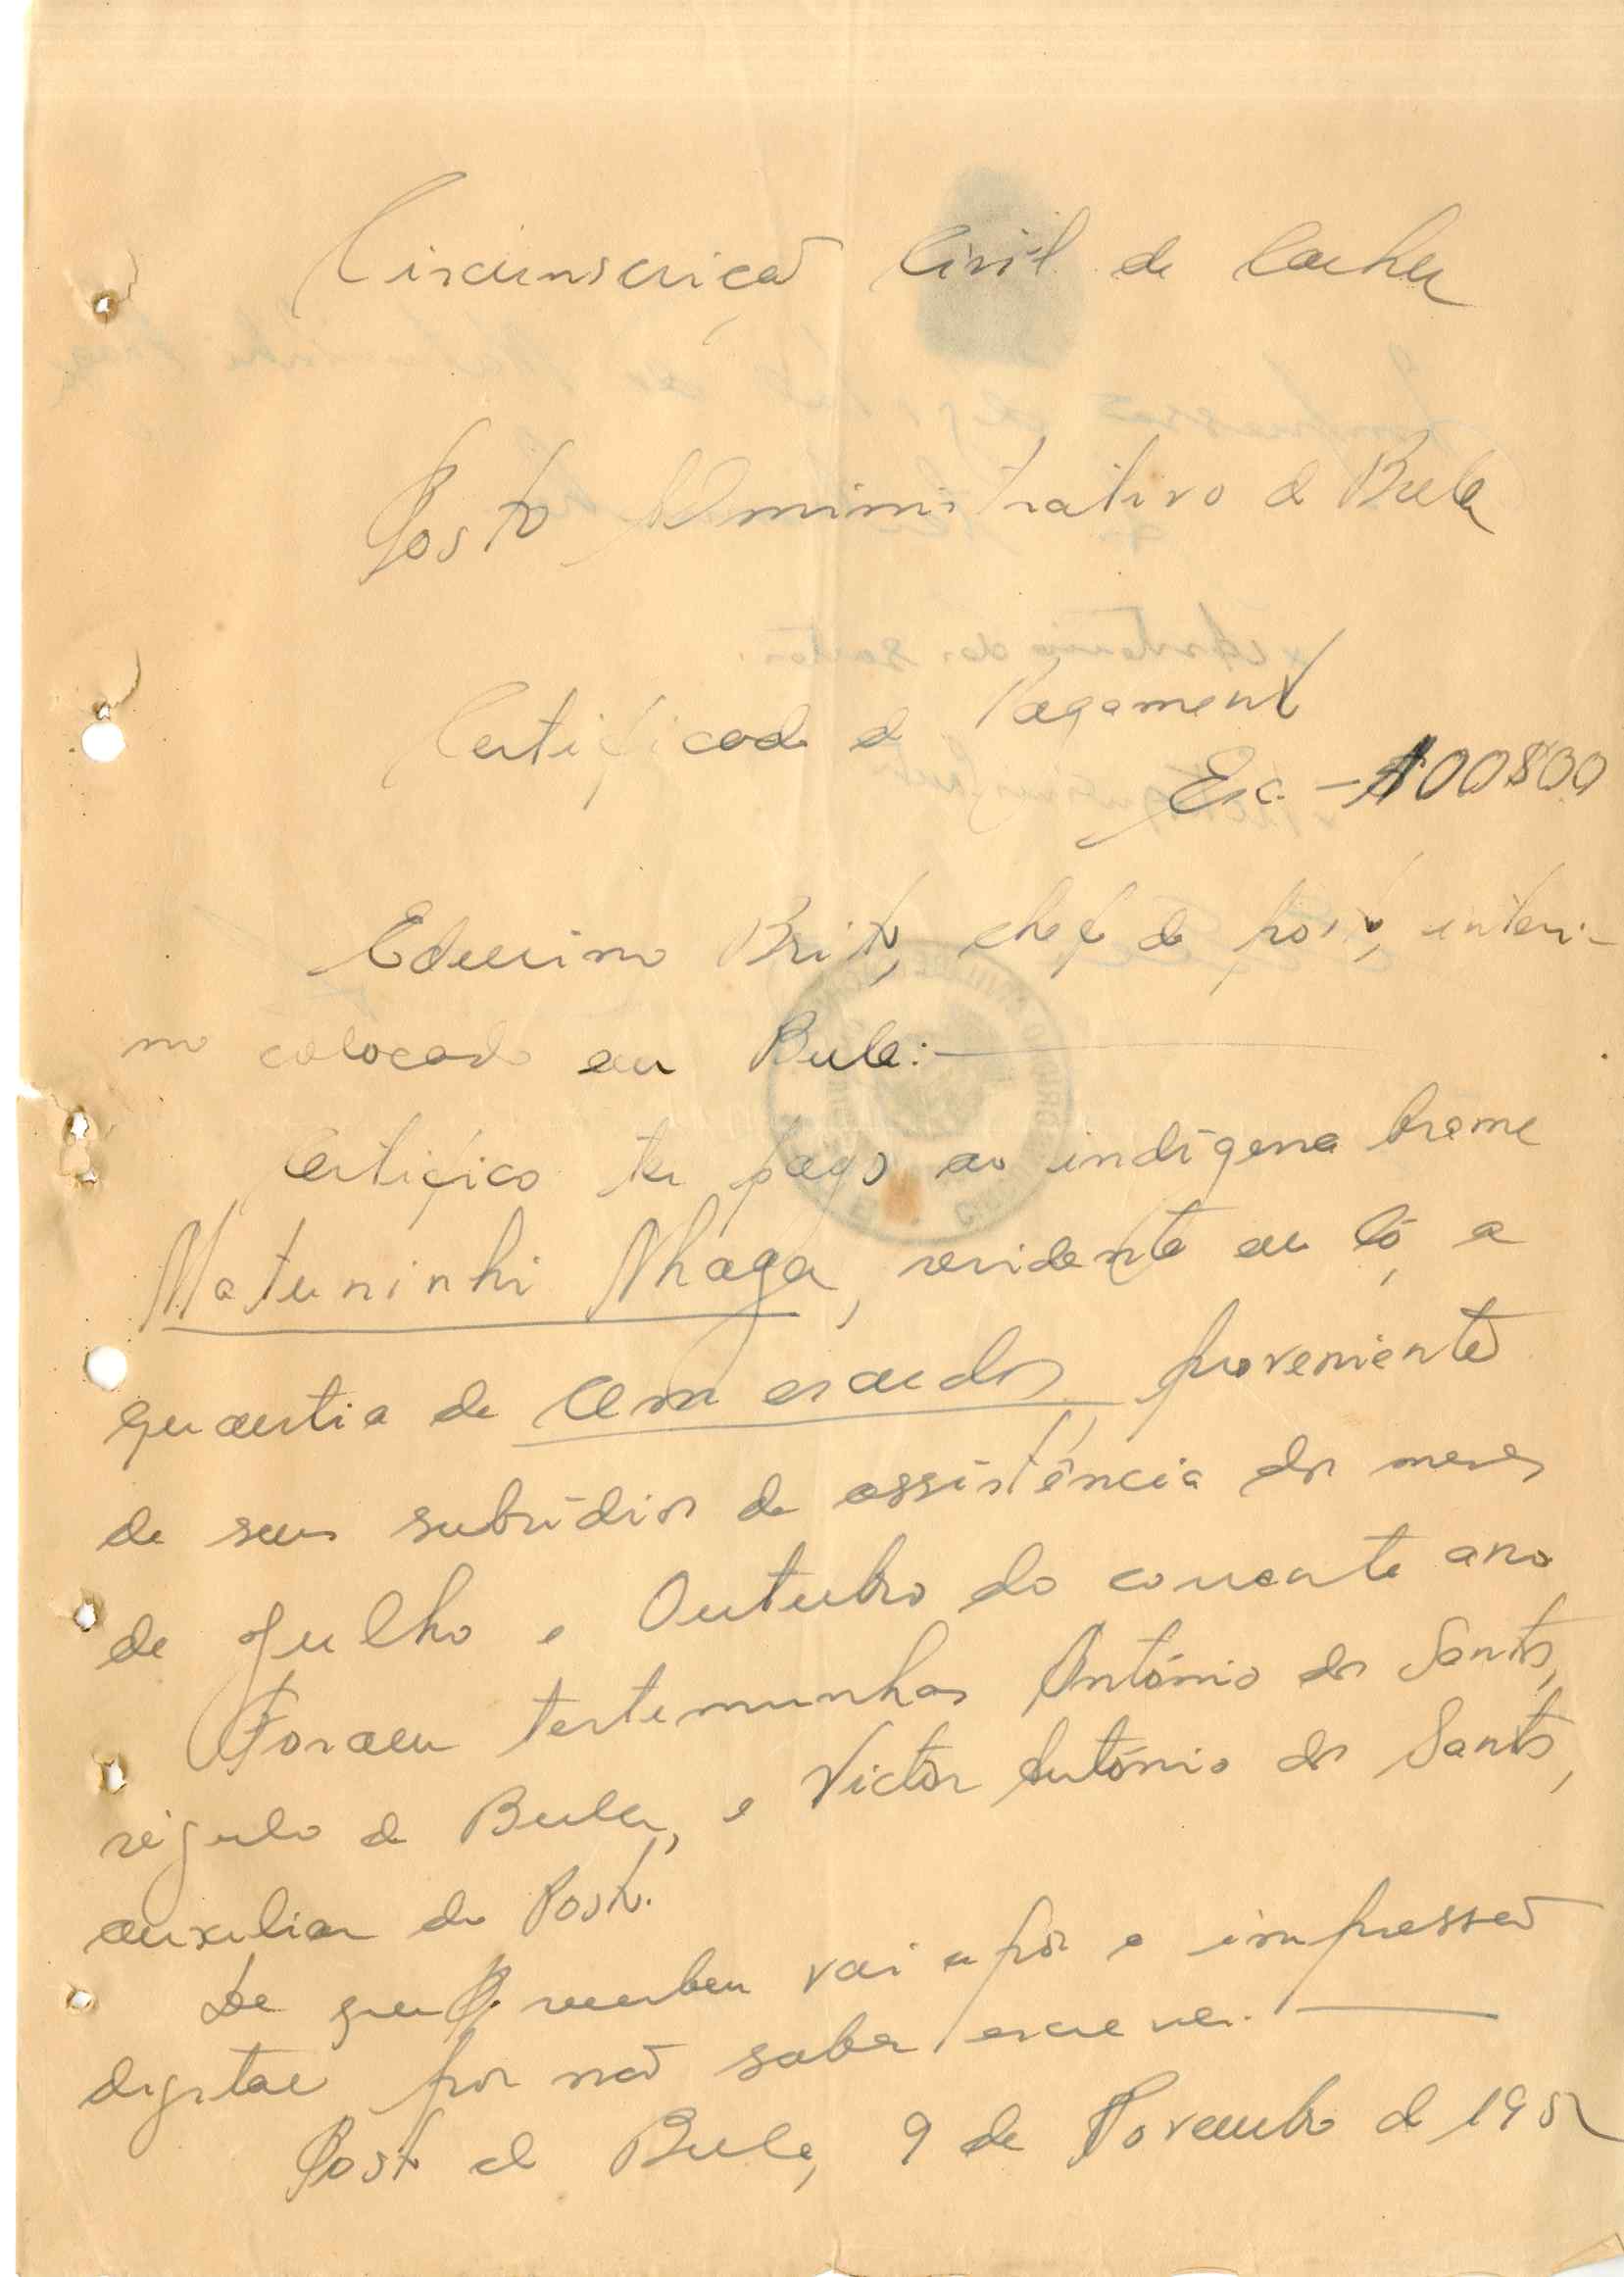 Circunscrição Civil de Cacheu
Posto Administrativo de Bula
Certificado de Pagamento
Esc. - 100$00
Edelmino Brito, chefe de posto, interi-
no colocado em Bula: -
Certifico ter pago ao indígena brame
Matuninhi Nhaga, residente em Có, a
quantia de cem escudos, proveniente
de seus subsídios de assistência dos meses
de Julho e Outubro do corrente ano
Foram testemunhas António dos Santos,
régulo de Bula, e Victor António dos Santos,
auxiliar do Posto.
De que recebeu vai apôr a impressão
digital por não saber escrever.
Posto de Bula, 9 de Novembro de 195